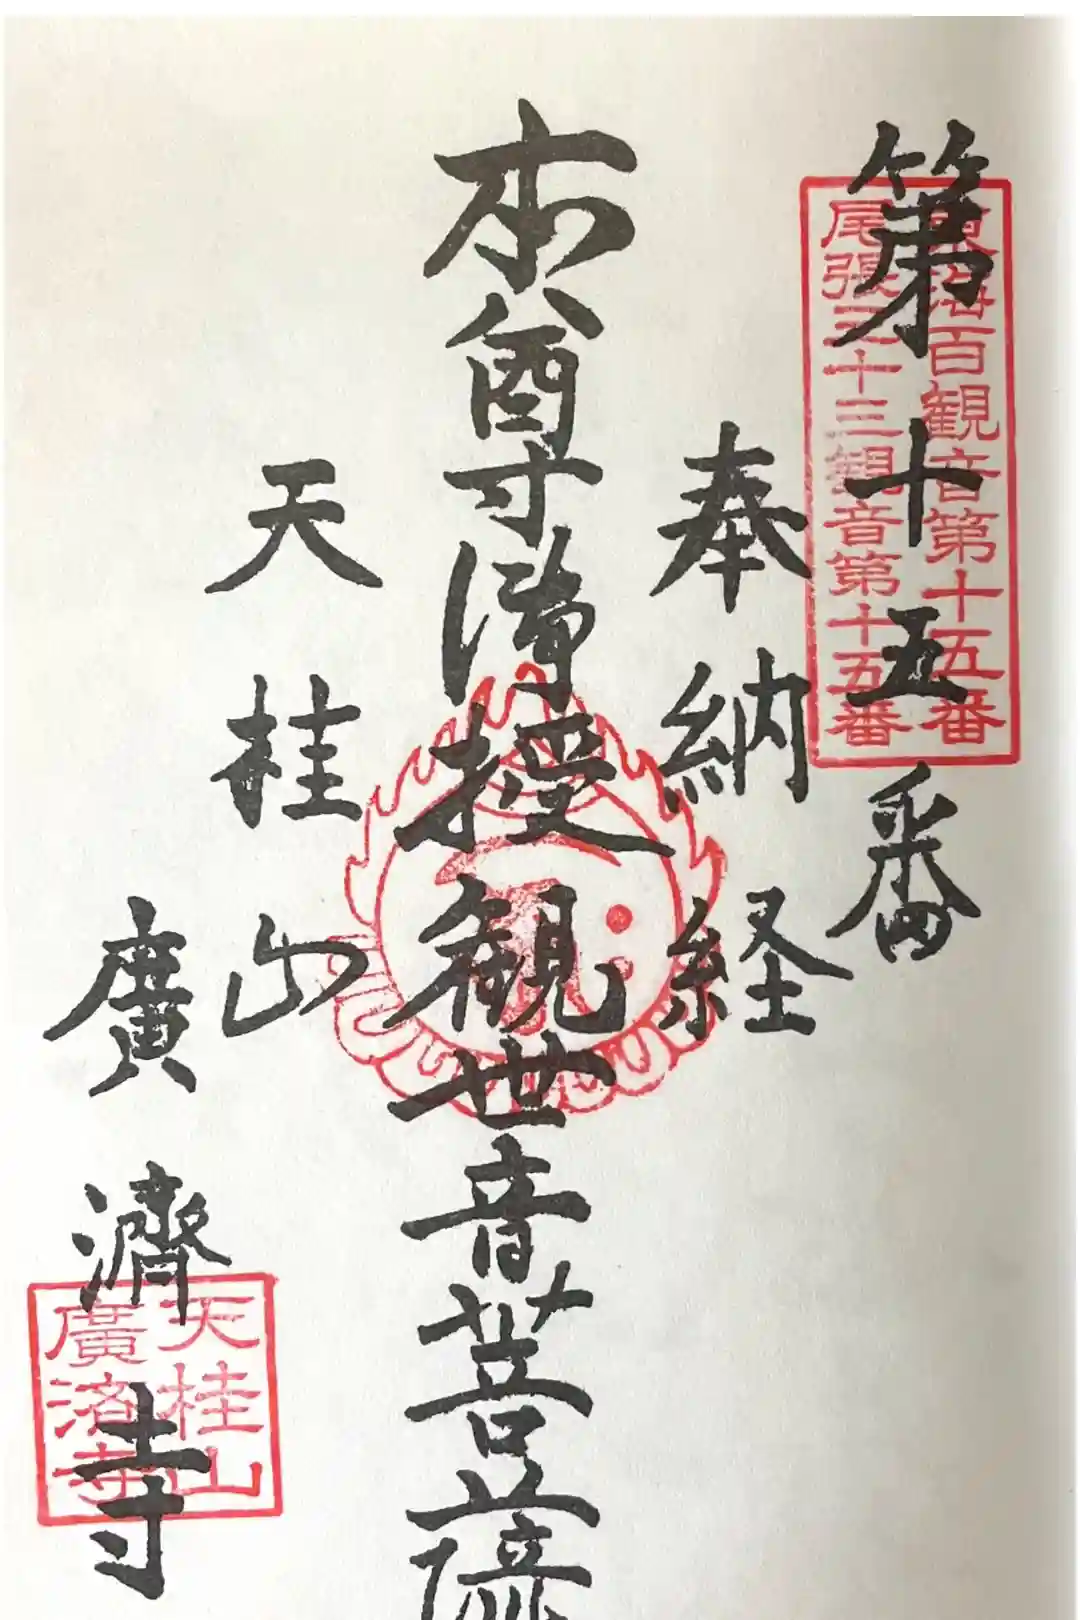 東海百観音第十五番
尾張三十三観音第十五番
第十五番
奉納経
本尊満授観世音菩薩
天桂山
廣濟寺
天桂山
廣済寺